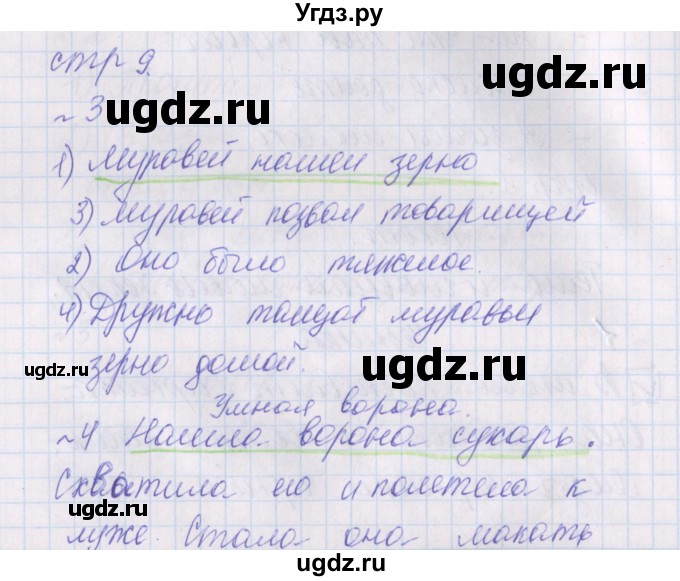 Угdз.ру
стр 9.
ugdz.ru ugdz.ru
~ 3
1) Муравей нашел зерно
3) Муравей позвал товарищей
2) Оно было тяжелое.
4) Дружно тащат муравьи
зерно домой.
ugdz.ru ugdz.ru
Умная ворона.
~ 4 Нашла ворона сухарь.
Схватила его и полетела к
ugdz.ru ugdz.ru
луже. Стала она макать
ugdz.ru